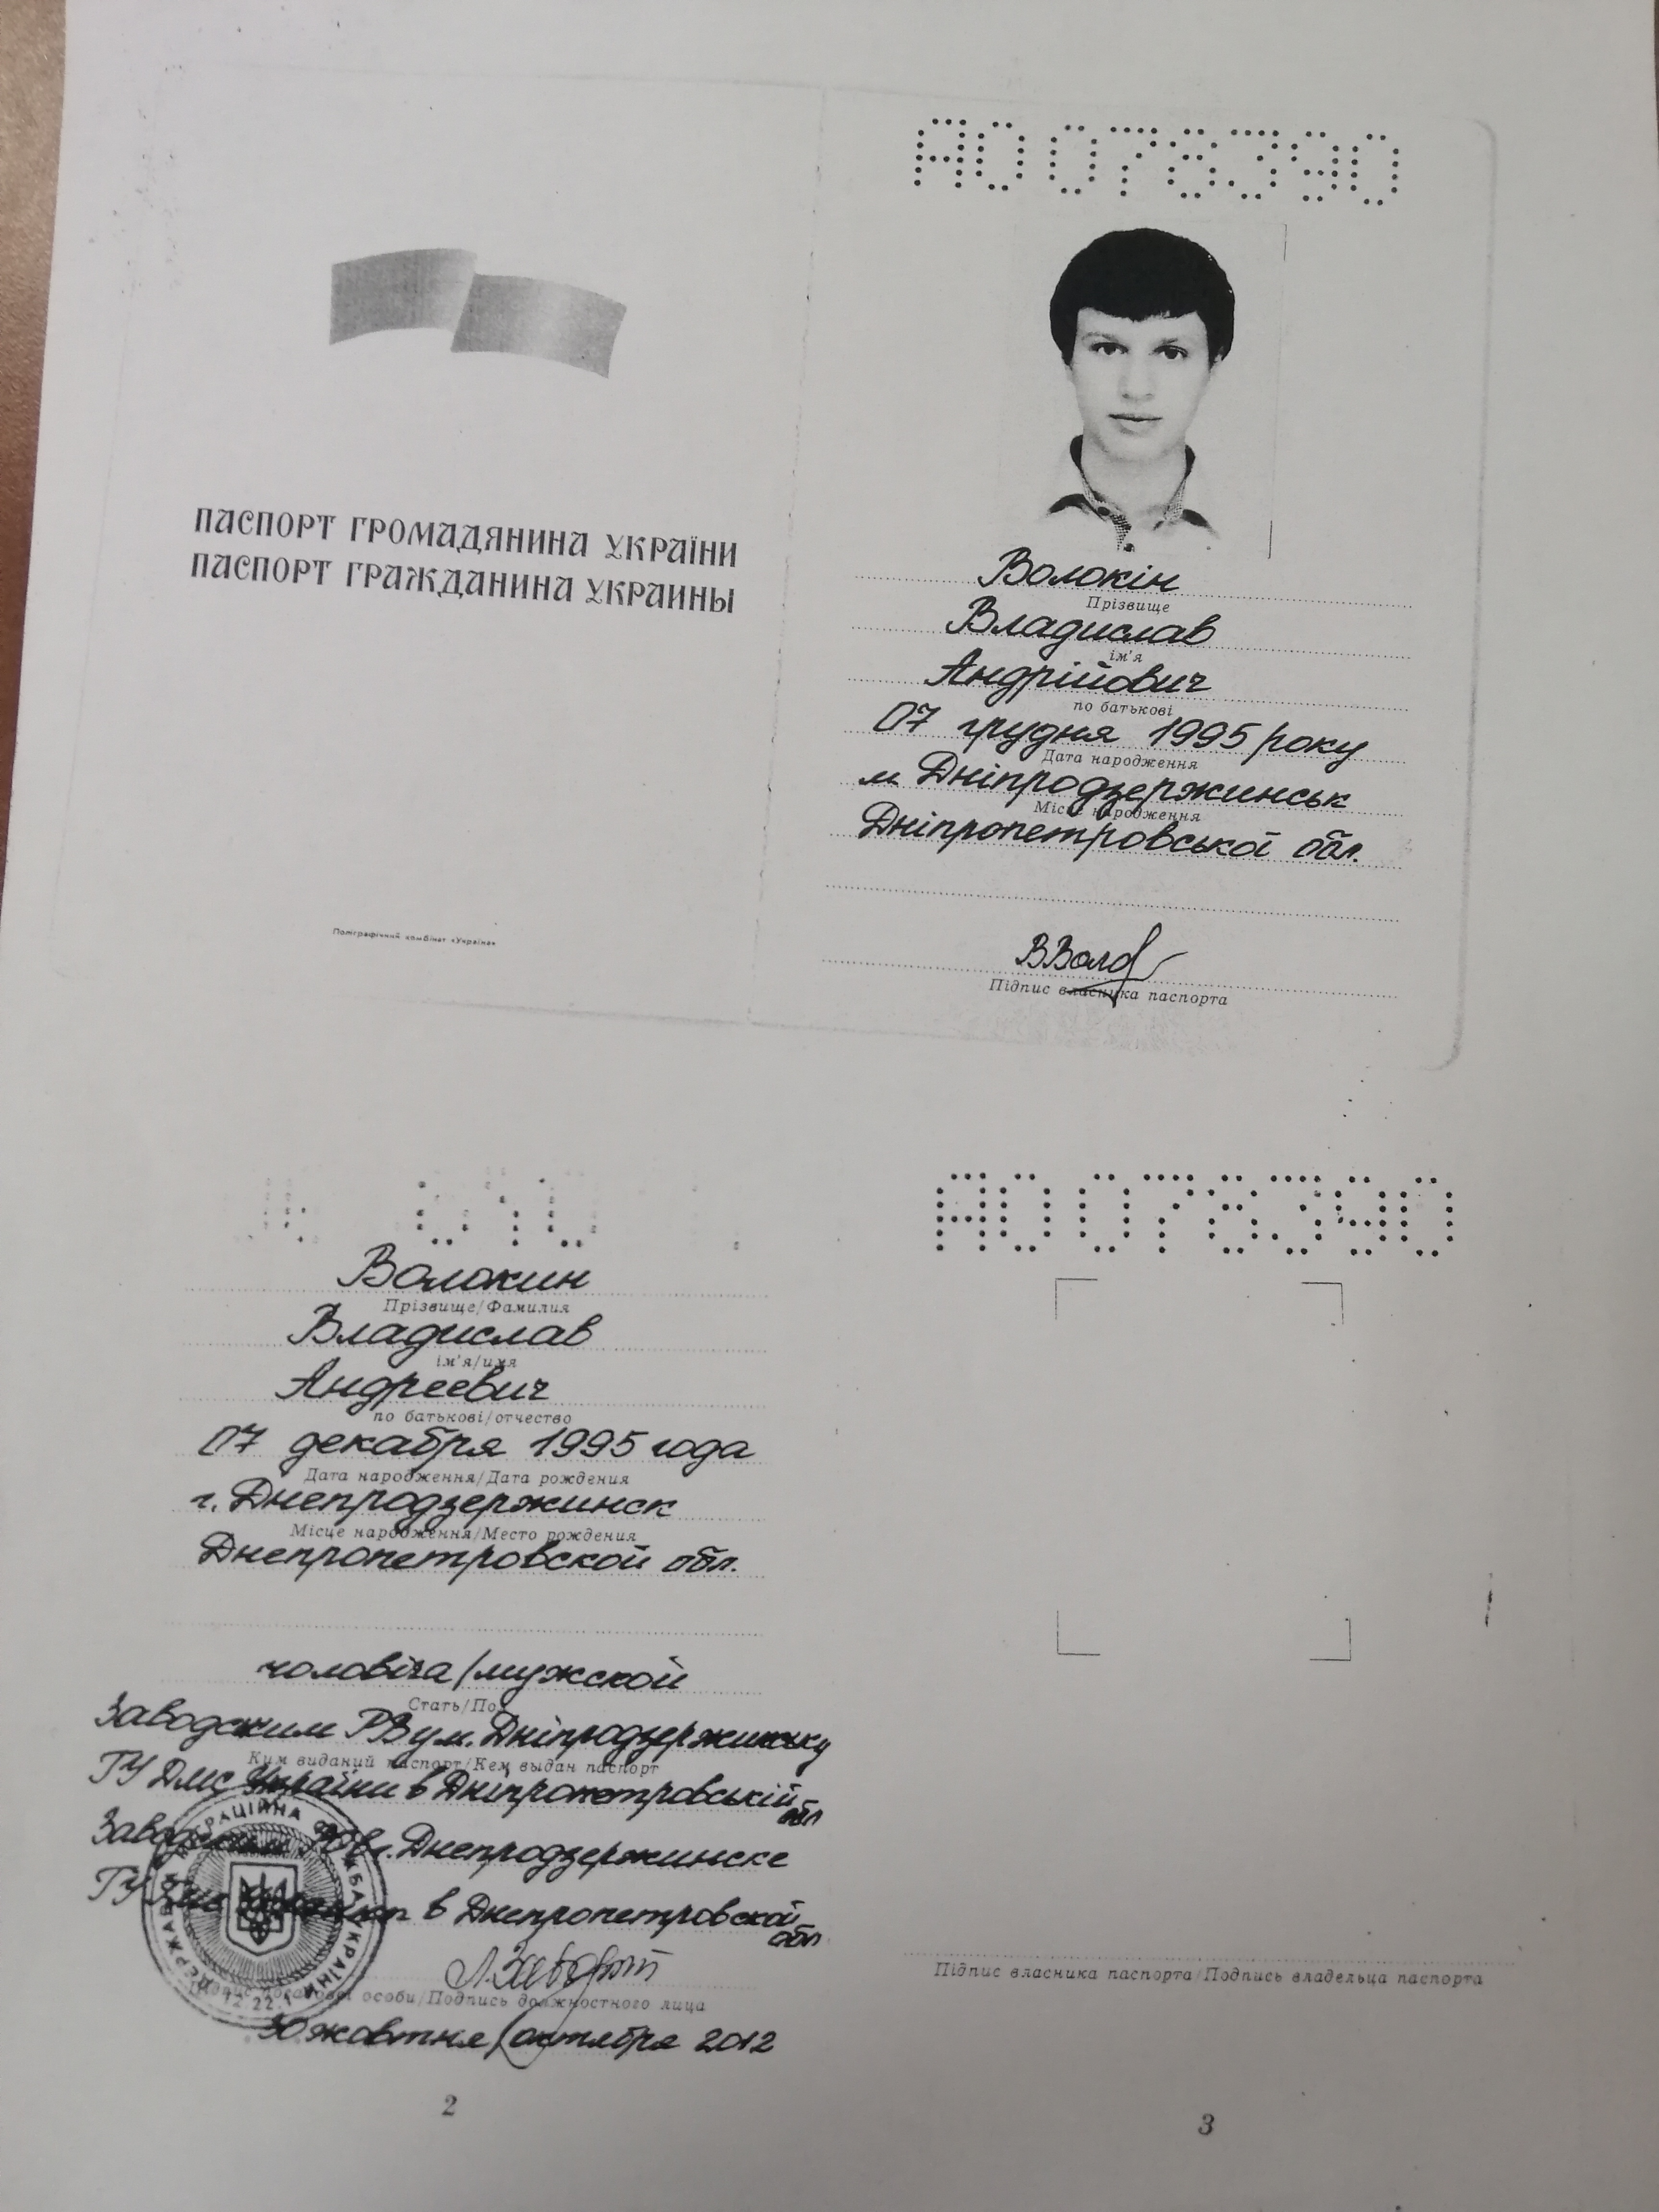 АО 078390
ПАСПОРТ ГРОМАДЯНИНА УКРАЇНИ
ПАСПОРТ ГРАЖДАНИНА УКРАИНЫ
Поліграфічний комбінат «Україна»
Волокін
Прізвище
Владислав
ім'я
Андрійович
по батькові
07 грудня 1995 року
Дата народження
м Дніпродзержинськ
Місце народження
Дніпропетровської обл.
ВВол
Підпис власника паспорта
Волокин
Прізвище/Фамилия
Владислав
ім'я/имя
Андреевич
по батькові/отчество
07 декабря 1995 года
Дата народження/Дата рождения
г. Днепродзержинск
Місце народження/Место рождения
Днепропетровской обл.
чоловіча/мужской
Стать/Пол
Заводским РВ у м. Дніпродзержинську
Ким виданий паспорт/Кем выдан паспорт
ГУ ДМС України в Дніпропетровській обл
Заводским РО в г. Днепродзержинске
ГУ в Днепропетровской обл
Підпис посадової особи/Подпись должностного лица
30 жовтня/октября 2012
2
АО 078390
Підпис власника паспорта/Подпись владельца паспорта
3